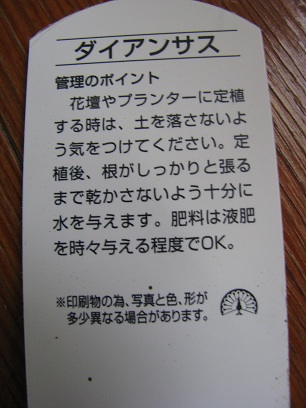 ダイアンサス
管理のポイント
花壇やプランターに定植
する時は、土を落さないよ
う気をつけてください。定
植後、根がしっかりと張る
まで乾かさないよう十分に
水を与えます。肥料は液肥
を時々与える程度でOK。
※印刷物の為、写真と色、形が
多少異なる場合があります。